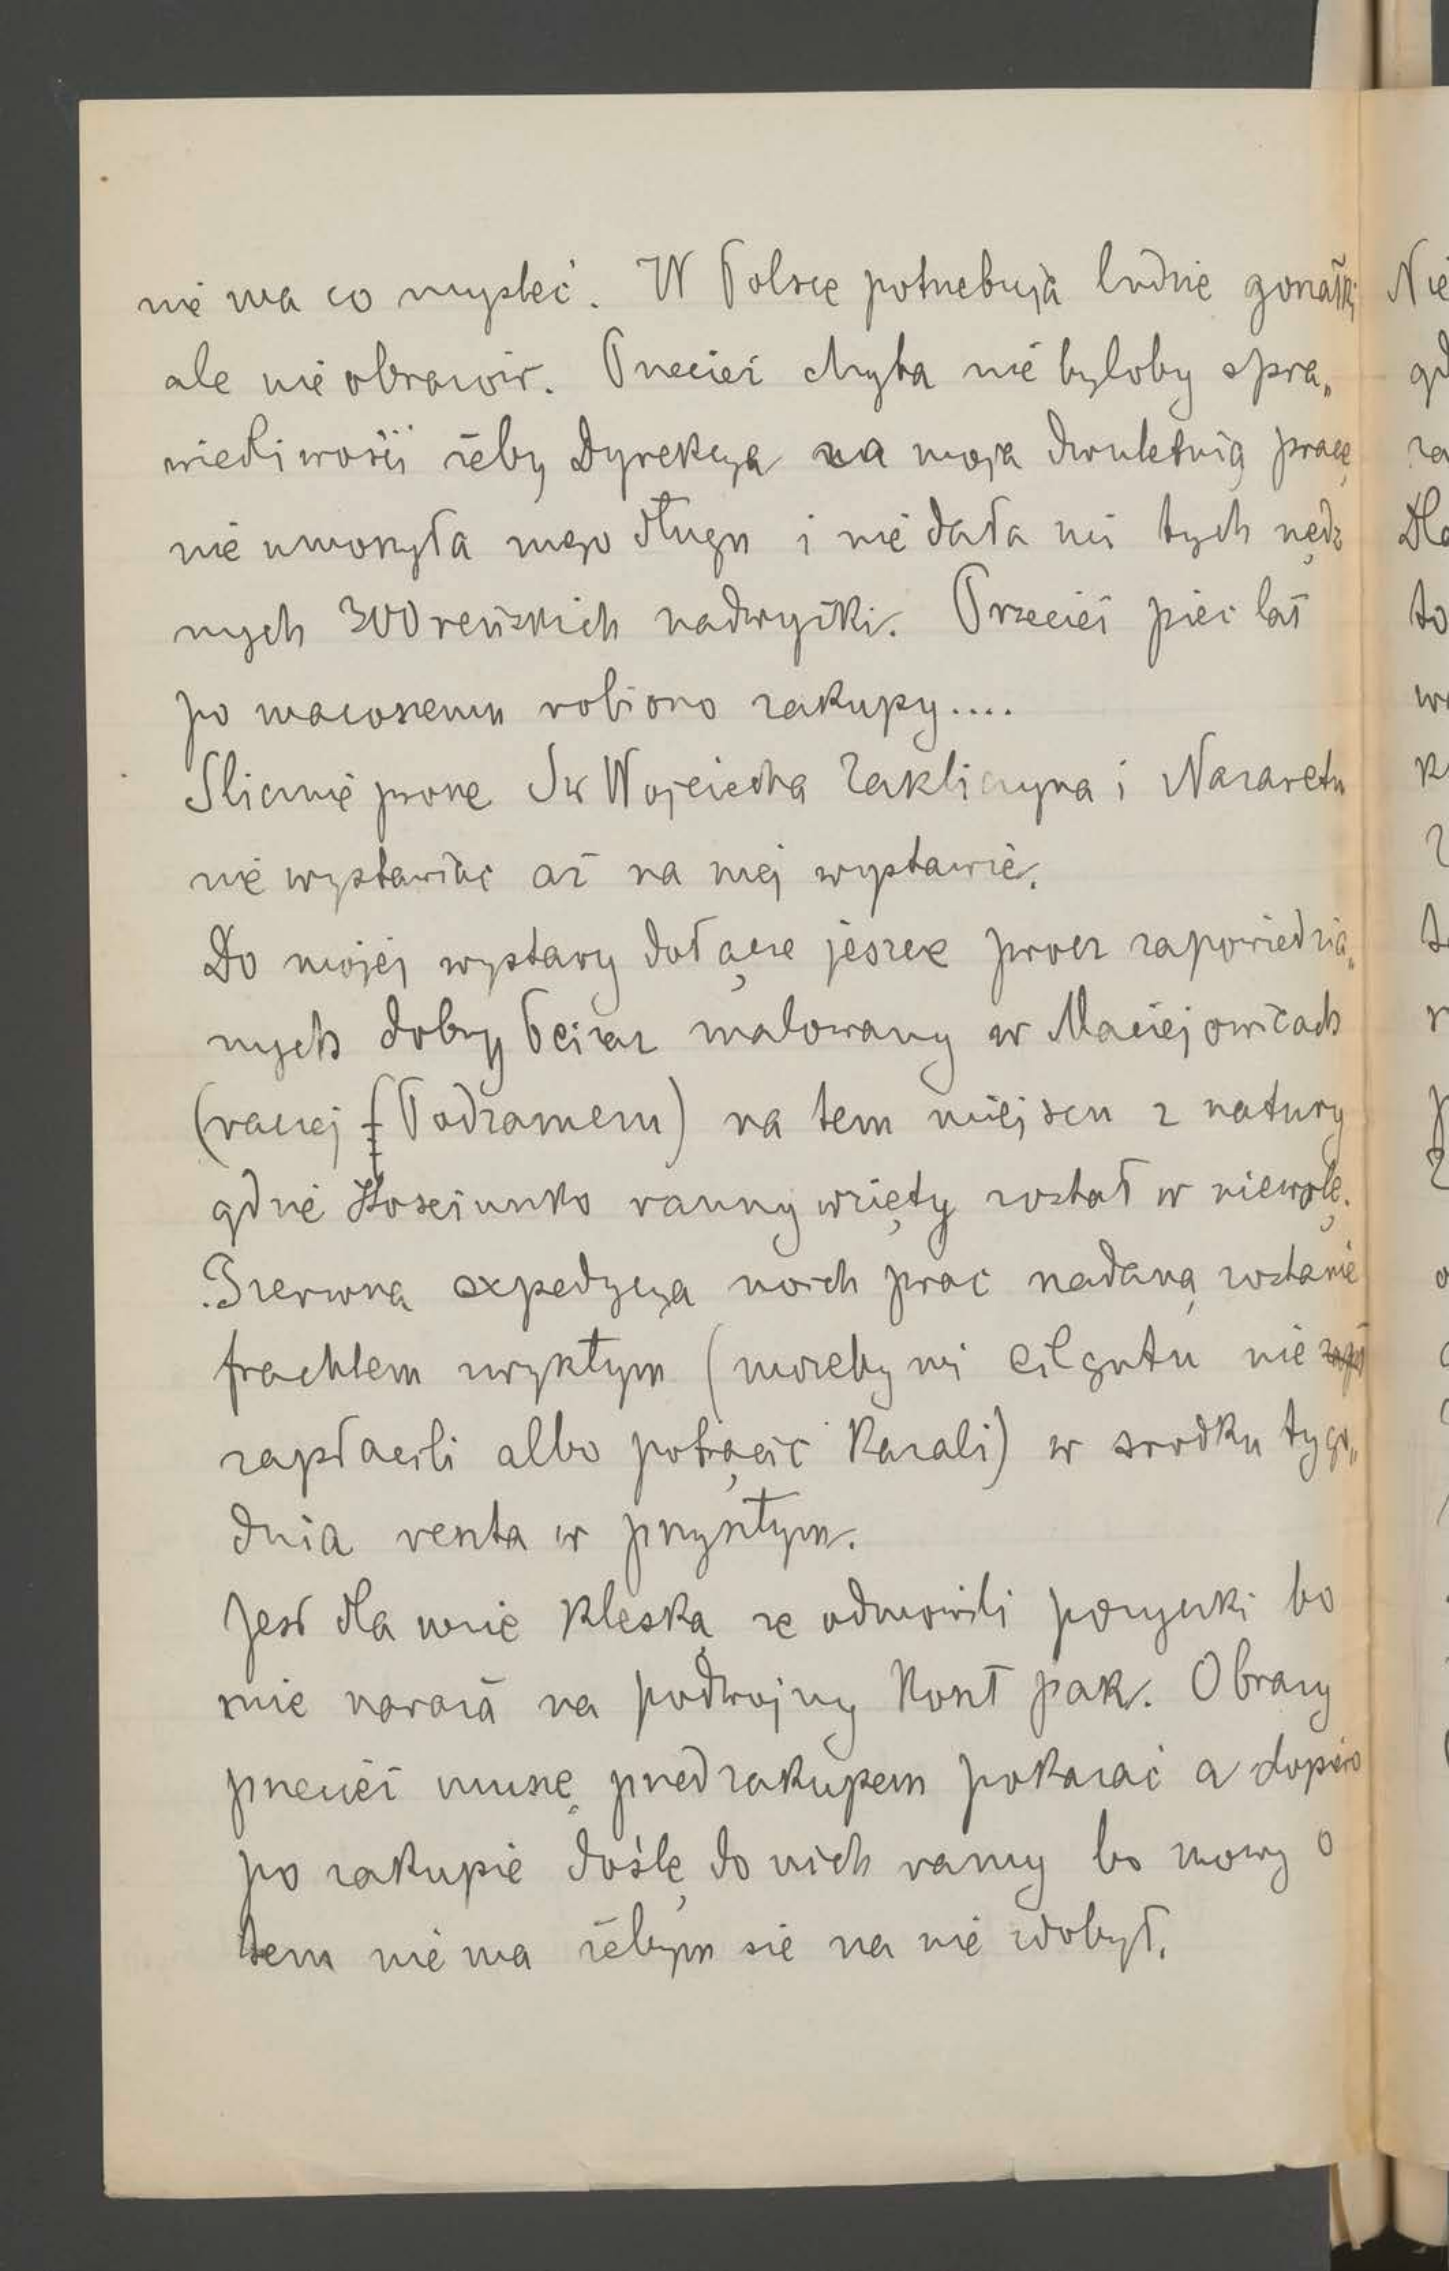 nie ma co mysleć. W Polsce potrzebują ludzie gorzałki
ale nie obrazów. Przecież chyba nie byłoby spra„
wiedliwości żeby Dyrekcya za moja dwuletnią pracę
nie umorzyła mego długu i nie dała mi tych nędz
nych 300 reńskich nadwyżki. Przecież pięć lat
po macoszemu robiono zakupy....
Slicznie proszę Sw Wojciecha Zakliczyna i Nazaretu
nie wystawiać aż na mej wystawie.
Do mojej wystawy dołącze jeszcze procz zapowiedzia„
nych dobry Pejzaz malowany w Maciejowicach
(raczej Podzamczu) na tem miejscu z natury
gdzie Kosciuszko ranny wzięty zostal w niewolę.
Pierwsza expedycya moich prac nadaną zostanie
frachtem zwykłym (możeby mi eilgutu nie
zapłacili albo potrącic kazali) w srodku tygo„
dnia reszta w przyszłym.
Jest dla mnie klęską ze odmowili pożyczki bo
mie naraża na podwojny koszt pak. Obrazy
przecież muszę przed zakupem pokazać a dopiero
po zakupie doślę do nich ramy bo mowy o
tem nie ma żebym sie na nie zdobył.
Nie
gd
za
Dla
to